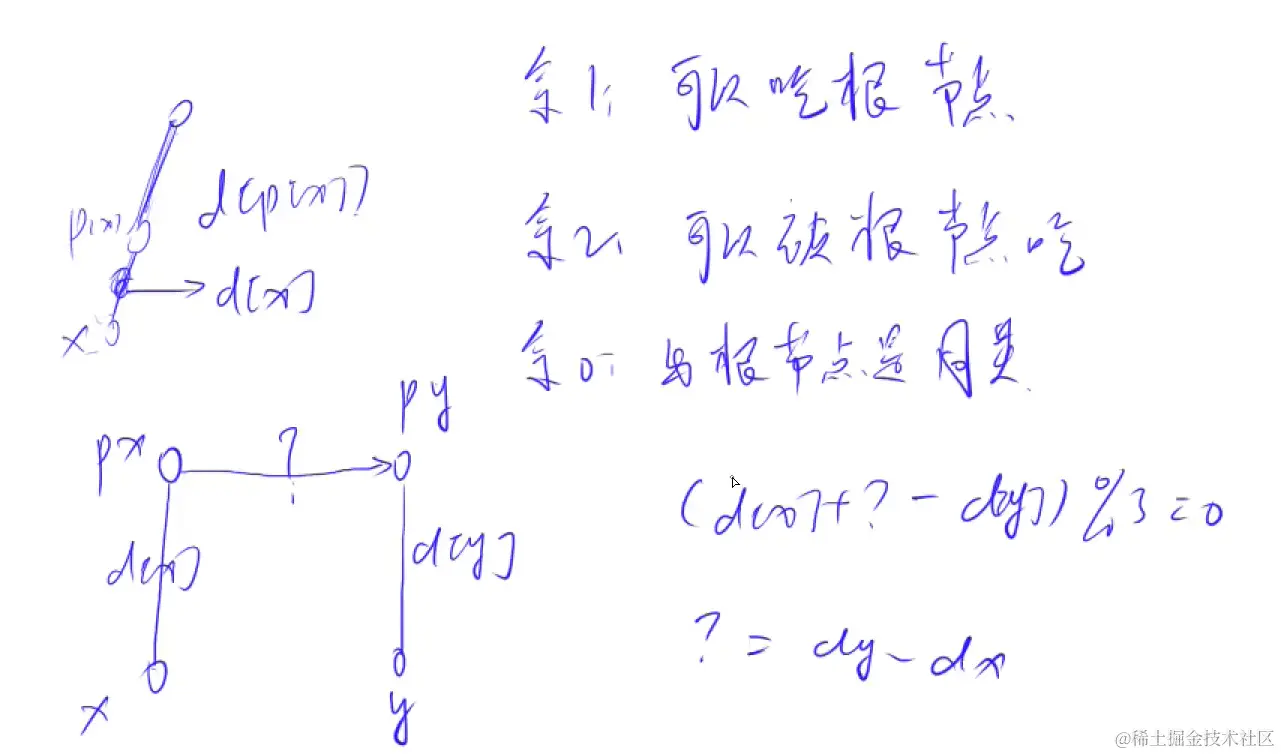 余1: 可以吃根节点
d[p[x]]
p[x]
余2: 可以被根节点吃
d[x]
x
余0: 与根节点是同类
py
px
?
(d[x]+? - d[y]) % 3 = 0
d[x]
d[y]
? = dy - dx
x
y
@稀土掘金技术社区